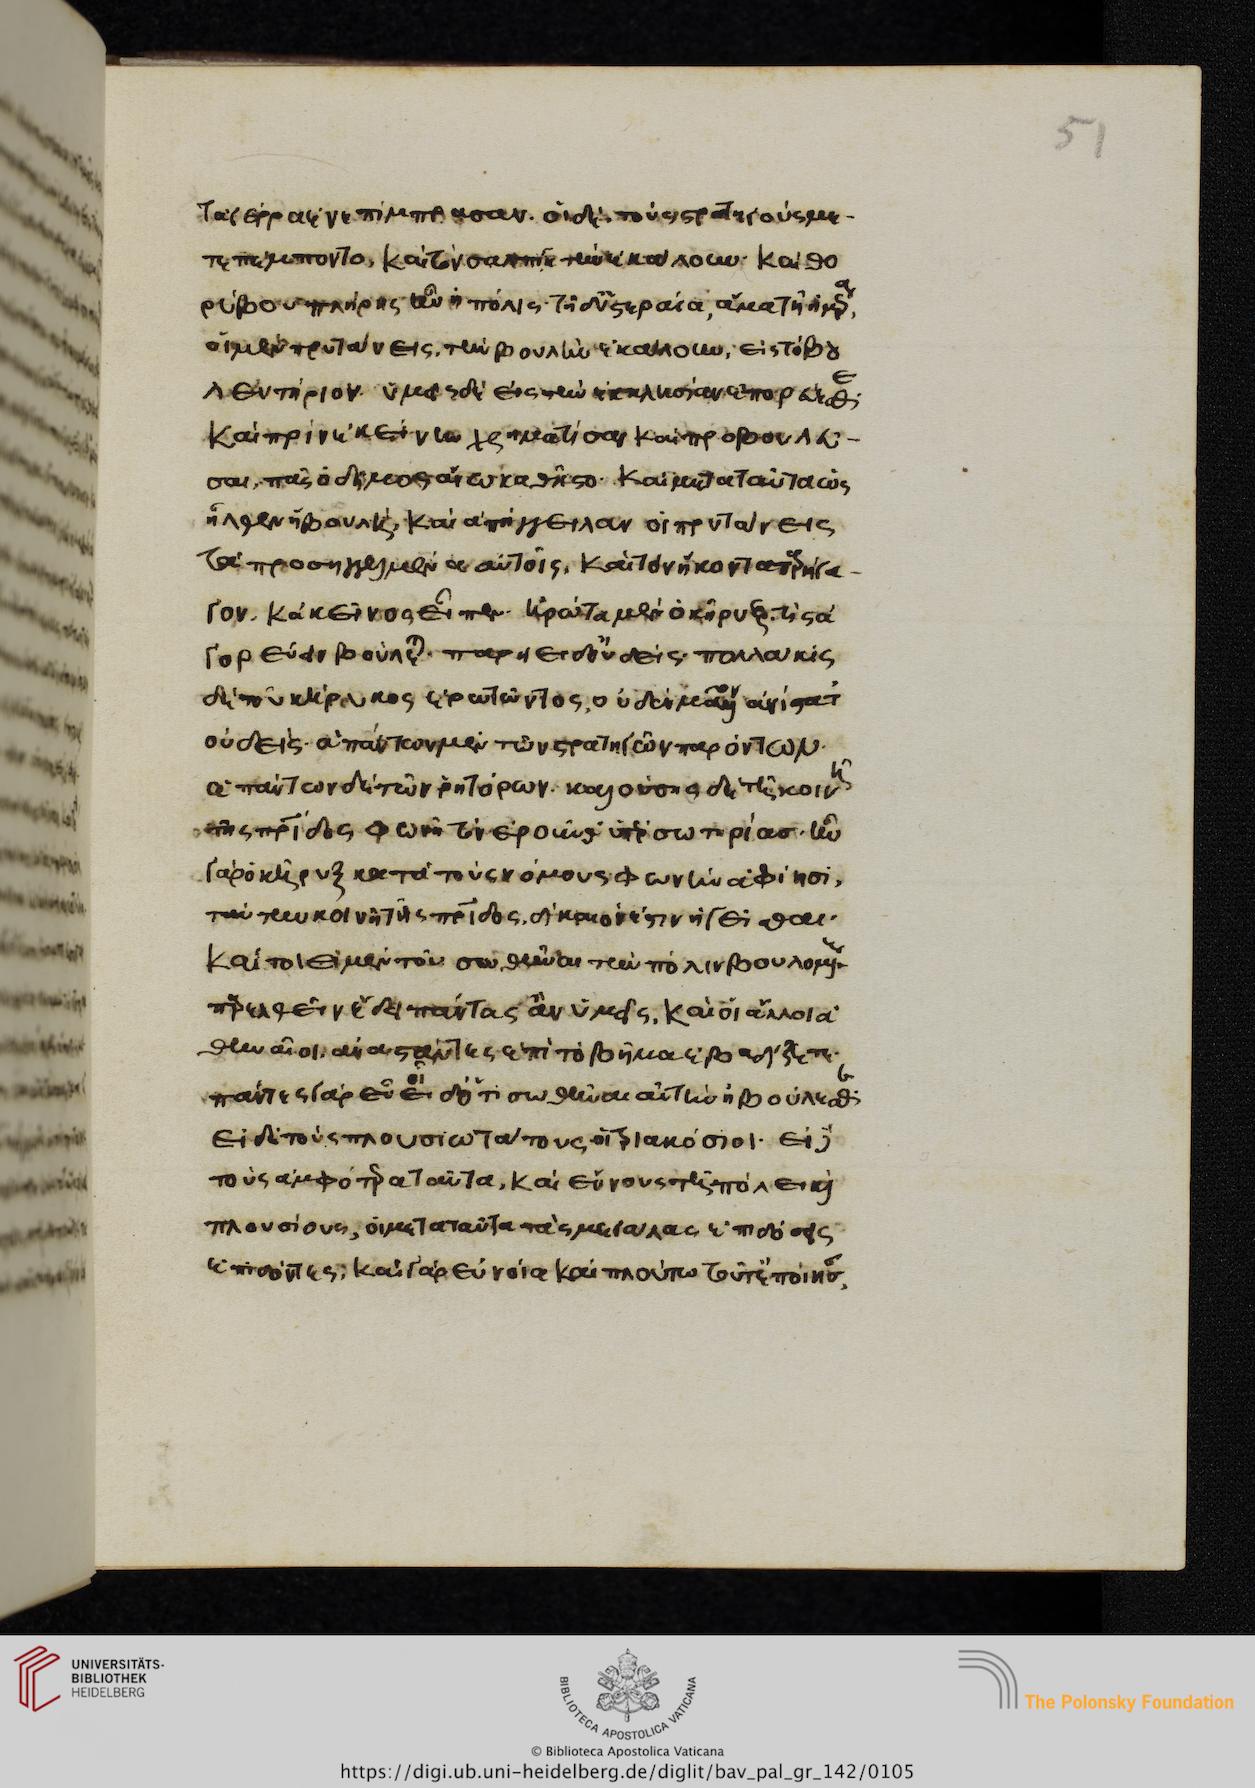 51
τὰ γέρρα ἐνεπίμπρασαν. οἱ δὲ, τοὺς στρατηγοὺς με-
τεπέμποντο, καὶ τὸν σαλπικτὴν ἐκάλουν. καὶ θο
ρύβου πλήρης ἦν ἡ πόλις. τῇ δ' ὑστεραία, ἅμα τῆ ἡμέρα,
οἱ μὲν πρυτάνεις, τὴν βουλὴν ἐκάλουν, εἰς τὸ βου
λευτήριον. ὑμεῖς δὲ εἰς τὴν ἐκκλησίαν ἐπορεύεσθε.
καὶ πρὶν ἐκείνην χρηματίσαι καὶ προβουλεῦ-
σαι, πᾶς ὁ δῆμος ἄνω καθῆστο. καὶ μετὰ ταῦτα ὡς
ἦλθεν ἡ βουλὴ, καὶ ἀπήγγειλαν οἱ πρυτάνεις
τὰ προσηγγελμένα αὐτοῖς, καὶ τὸν ἥκοντα παρήγα-
γον. κἀκεῖνος εἶπεν. ἠρώτα μὲν ὁ κῆρυξ, τίς ἀ
γορεύειν βούλεται. παρήει δ' οὐδείς. πολλάκις
δὲ τοῦ κήρυκος ἐρωτῶντος, οὐδὲν μᾶλλον ἀνίστατο
οὐδείς. ἁπάντων μὲν τῶν στρατηγῶν παρόντων.
ἁπάντων δὲ τῶν ῥητόρων. καλούσης δὲ τῆ κοινῆ
τῆς πατρίδος φωνῆ τὸν ἐροῦνθ' ὑπὲρ σωτηρίας. ἣν
γὰρ ὁ κῆρυξ κατὰ τοὺς νόμους φωνὴν ἀφίησι,
ταύτην κοινὴν τῆς πατρίδος, δίκαιόν ἐστιν ἡγεῖσθαι.
καίτοι εἰ μὲν τὸν σωθῆναι τὴν πόλιν βουλομένων
παρελθεῖν ἔδει πάντας ἂν ὑμεῖς, καὶ οἱ ἄλλοι ἀ
θηναῖοι ἀναστάντες ἐπὶ τὸ βῆμα ἐβαδίζετε.
πάντες γὰρ εὖ οἶδ' ὅτι σωθῆναι αὐτὴν ἠβούλεσθε.
εἰ δὲ τοὺς πλουσιωτάτους, οἱ τριακόσιοι. εἰ δὲ
τοὺς ἀμφότερα ταῦτα, καὶ εὔνους τῆ πόλει καὶ
πλουσίους, οἱ μετὰ ταῦτα τὰς μεγάλας ἐπιδόσεις
ἐπιδόντες, καὶ γὰρ εὐνοία καὶ πλούτω τοῦτ' ἐποίησαν,
UNIVERSITÄTS-
BIBLIOTHEK
HEIDELBERG
BIBLIOTECA APOSTOLICA VATICANA
The Polonsky Foundation
© Biblioteca Apostolica Vaticana
https://digi.ub.uni-heidelberg.de/diglit/bav_pal_gr_142/0105